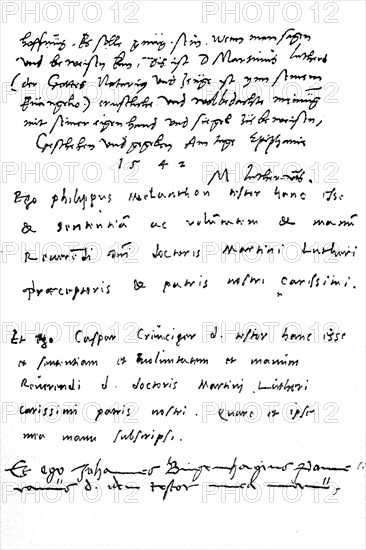 hoffnung. Es solle gnug sein, wenn man sagen
und beweisen kan, Dis ist D Martinus Luthers
(der Gottes Notarius und Zeuge ist ynn seinem
Euangelio) ernstliche und wolbedachte meinung
mit seiner eigen hand und siegel zu beweisen,
Geschehen und gegeben Am tage Epiphanie
1542
M Luther
Ego philippus Melanthon testor hanc esse
& sententiã ac volũtatem & manũ
Reverẽdi dñi doctoris Martini Lutheri
præceptoris & patris nostri carissimi.
Et ego Caspar Crũciger d. testor hanc esse
et sententiam et voluntatem et manũm
Revẽrendi d. doctoris Martini Lutheri
carissimi patris nostri. Quare et ipse
mea manu subscripsi.
Et ego Johannes Bugenhagius Pome
ranus d. idem testor mea manu.